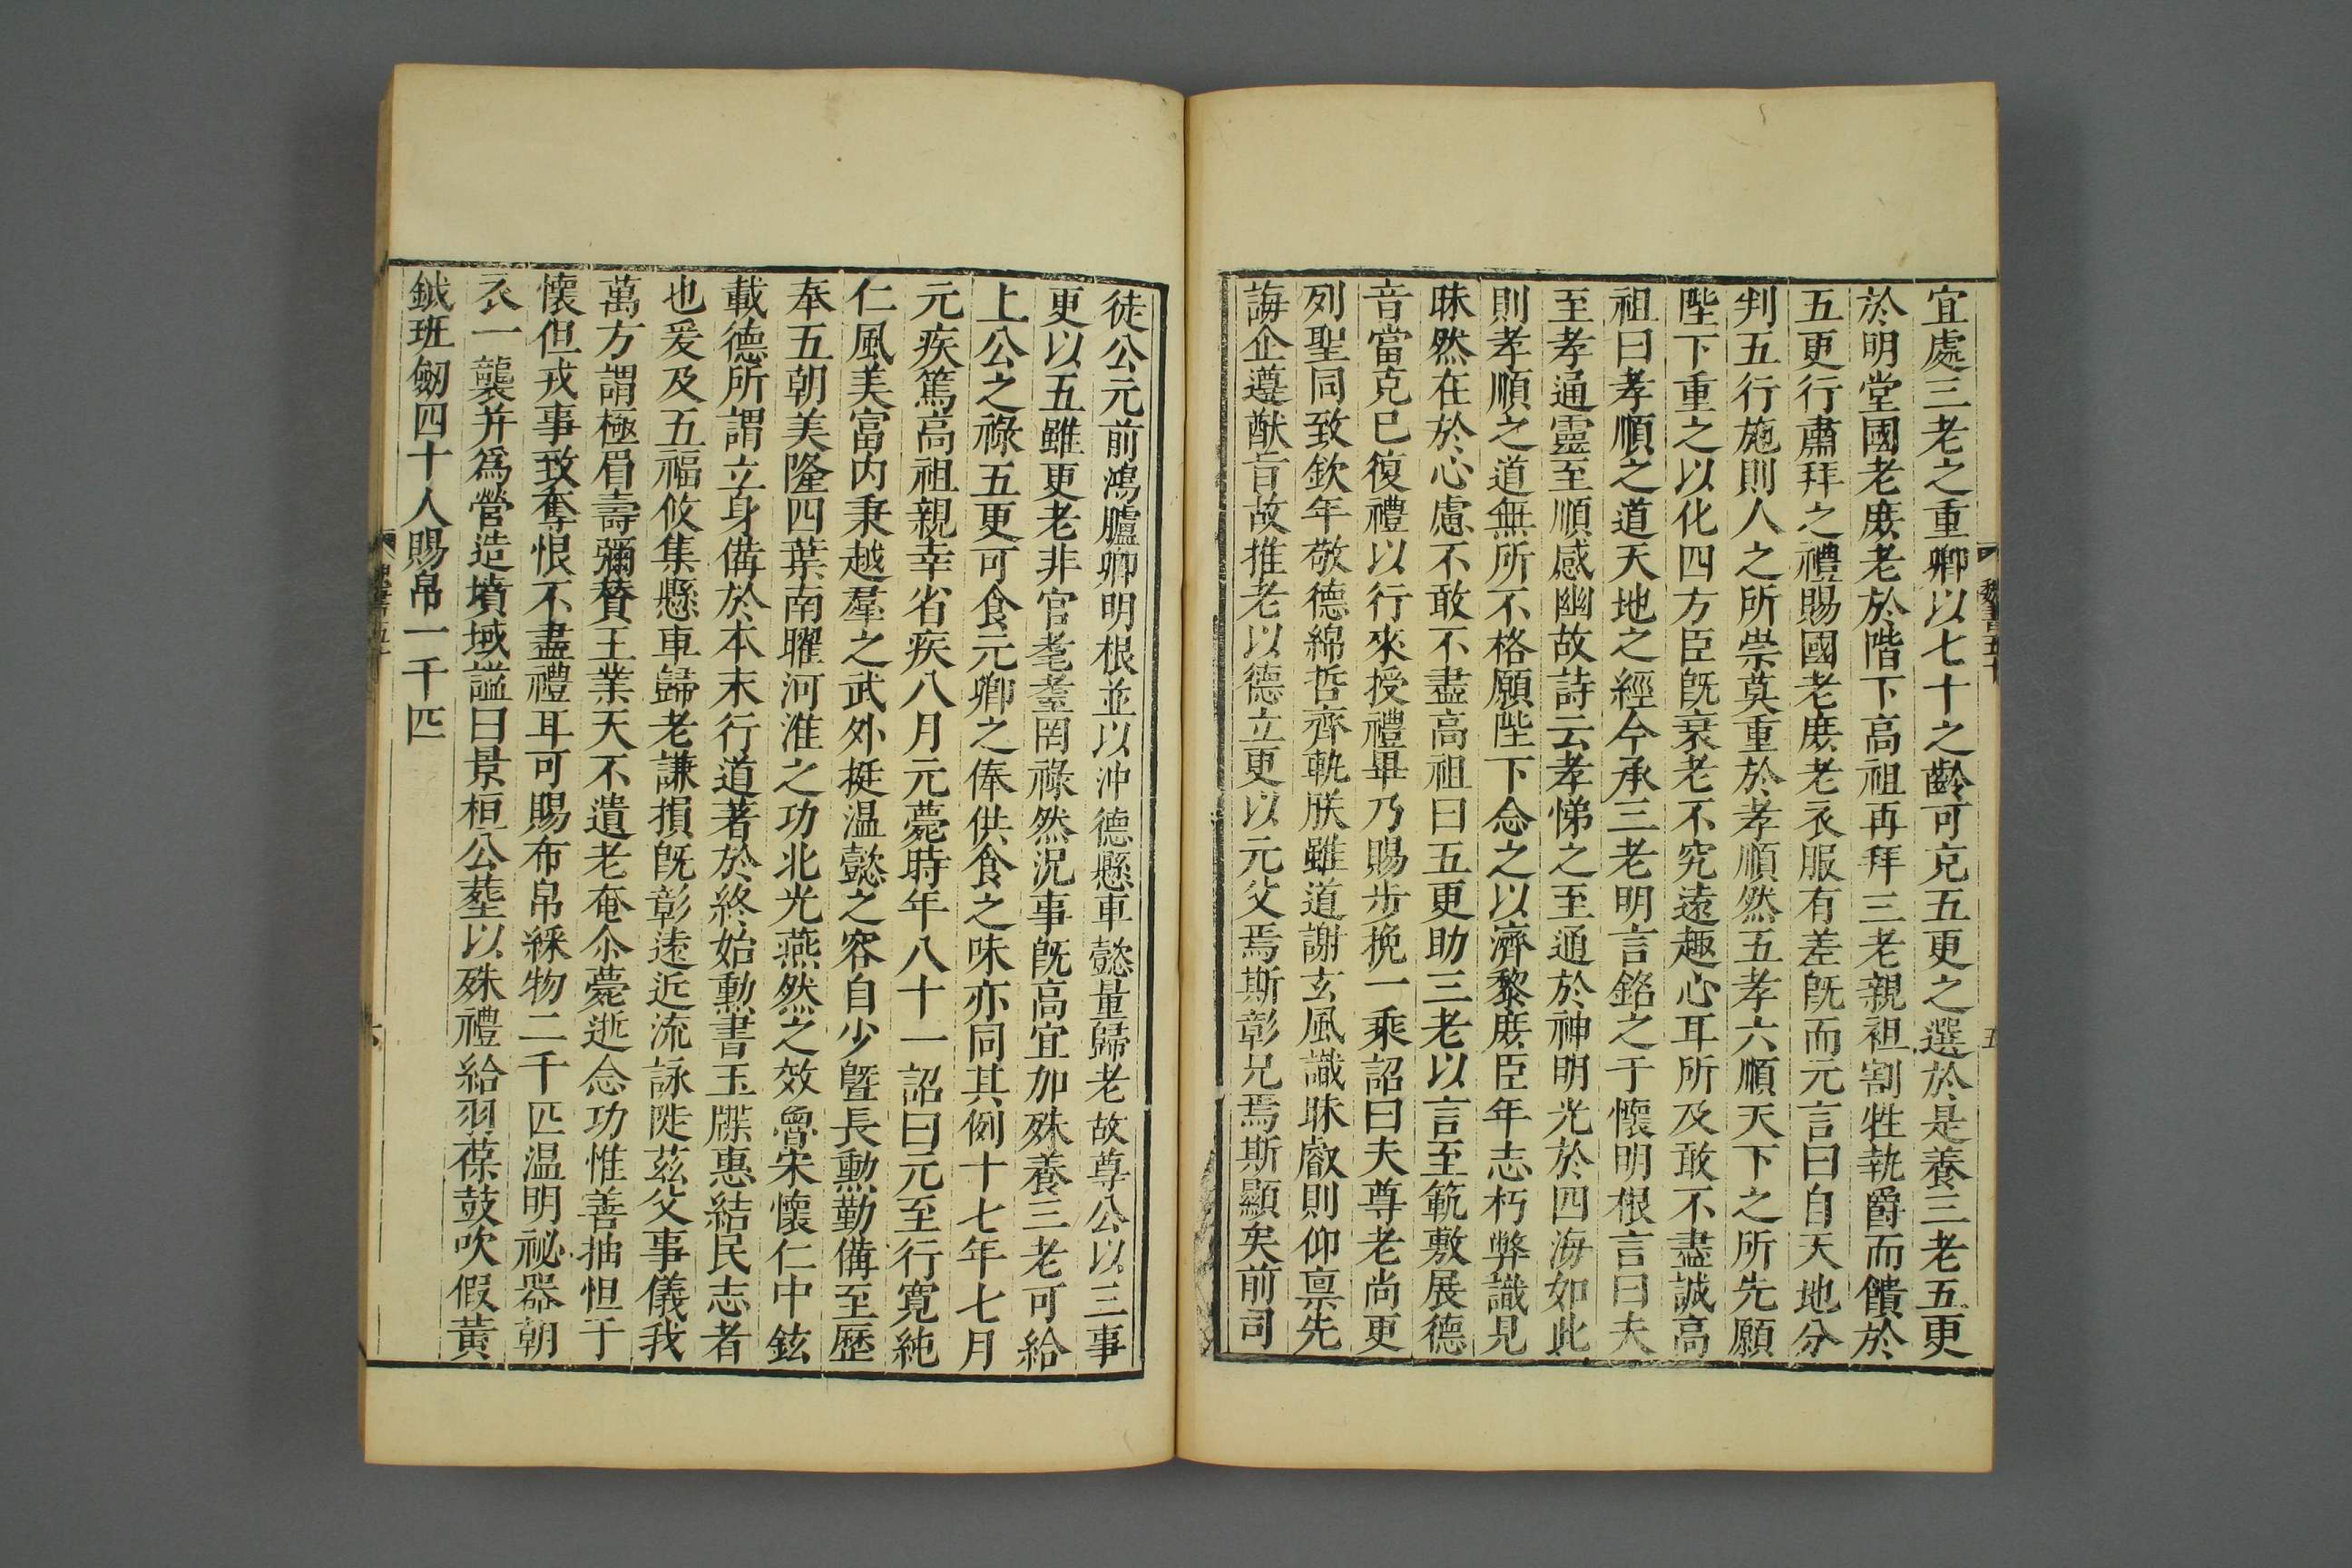 宜處三老之重卿以七十之齡可充五更之選於是養三老五更
於明堂國老庶老於階下高祖再拜三老親袒割牲執爵而饋於
五更行肅拜之禮賜國老庶老衣服有差旣而元言曰自天地分
判五行施則人之所崇莫重於孝順然五孝六順天下之所先願
陛下重之以化四方臣旣衰老不究遠趣心耳所及敢不盡誠高
祖曰孝順之道天地之經今承三老明言銘之于懷明根言曰夫
至孝通靈至順感幽故詩云孝悌之至通於神明光於四海如此
則孝順之道無所不格願陛下念之以濟黎庶臣年志朽弊識見
昧然在於心慮不敢不盡高祖曰五更助三老以言至範敷展德
音當克己復禮以行來授禮畢乃賜步挽一乘詔曰夫尊老尚更
列聖同致欽年敬德綿哲齊軌朕雖道謝玄風識昧叡則仰禀先
誨企遵猷旨故推老以德立更以元父焉斯彰兄焉斯顯矣前司
魏書五十
五
徒公元前鴻臚卿明根並以沖德懸車懿量歸老故尊公以三事
更以五雖更老非官耄耋罔祿然況事旣高宜加殊養三老可給
上公之祿五更可食元卿之俸供食之味亦同其例十七年七月
元疾篤高祖親幸省疾八月元薨時年八十一詔曰元至行寬純
仁風美富内秉越羣之武外挺温懿之容自少曁長勳勤備至歷
奉五朝美隆四葉南曜河淮之功北光燕然之效魯宋懷仁中鉉
載德所謂立身備於本末行道著於終始勳書玉牒惠結民志者
也爰及五福攸集懸車歸老謙損旣彰遠近流詠陟茲父事儀我
萬方謂極眉壽彌贊王業天不遺老奄尒薨逝念功惟善抽怛于
懷但戎事致奪恨不盡禮耳可賜布帛綵物二千匹温明祕器朝
衣一襲并爲營造墳域謚曰景桓公葬以殊禮給羽葆鼓吹假黃
鉞班劒四十人賜帛一千匹